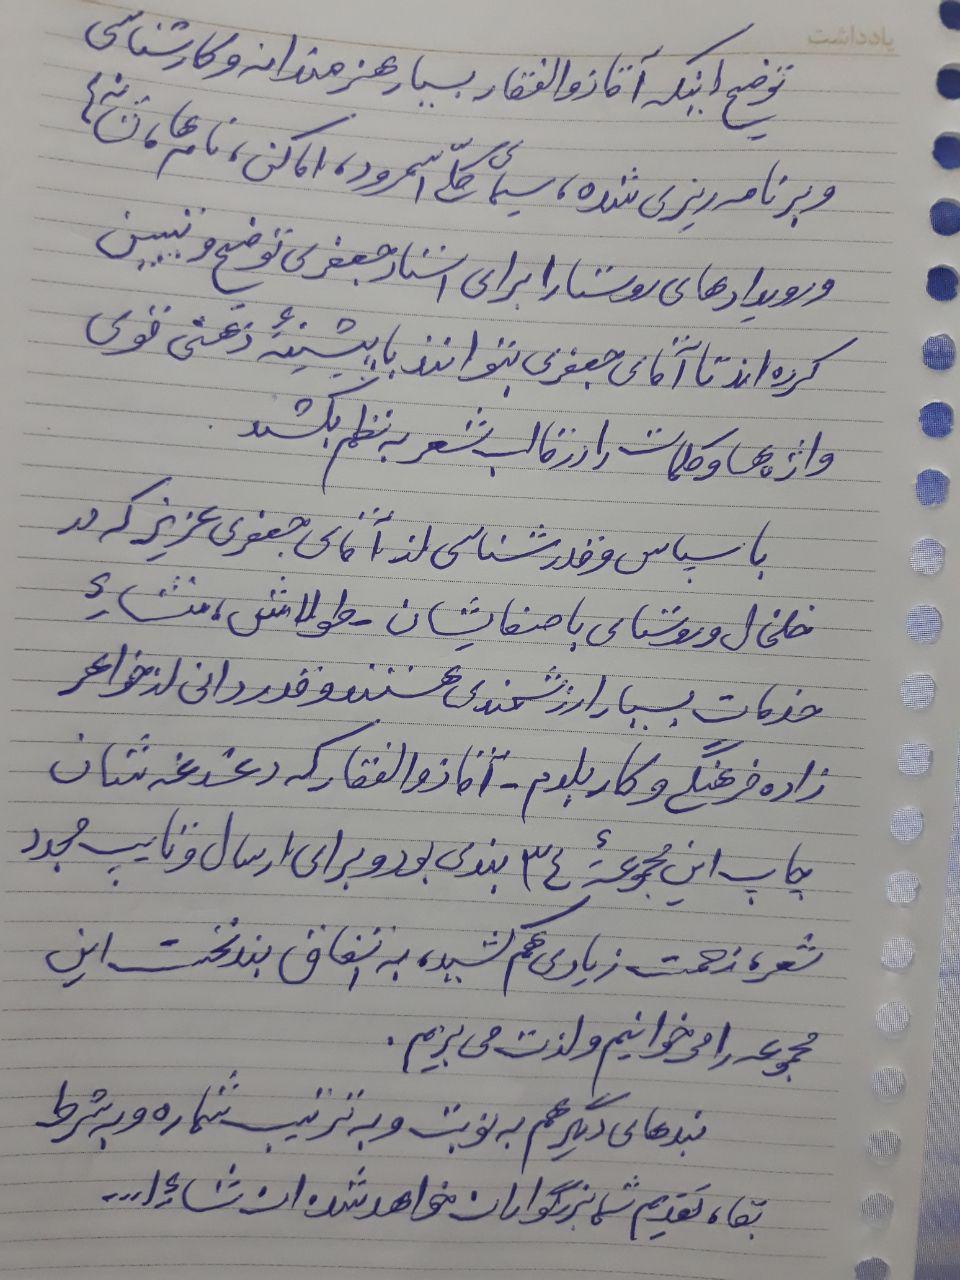 یادداشت
توضیح اینکه آقا ذوالفقار بسیار هنرمندانه و کارشناسی
و برنامه ریزی شده، سیمای کلّی اسمرود، اماکن، نام‌ها،
و رویدادهای روستا را برای استاد جعفری توضیح و تبیین
کرده اند تا آقای جعفری بتوانند با پیشینهٔ ذهنی قوی
واژه‌ها و کلمات را در قالب شعر به نظم بکشند.
با سپاس و قدرشناسی از آقای جعفری عزیز که در
خلخال و روستای باصفایشان - طولاش، منشاءِ
خدمات بسیار ارزشمندی هستند و قدردانی از خواهر
زاده فرهنگی و کاربلدم - آقا ذوالفقار که دغدغه شان
چاپ این مجموعهٔ ۳۴ بندی بود و برای ارسال و تایپ مجدد
شعر، زحمت زیادی هم کشید، به اتفاق بند نخست این
مجموعه را می‌خوانیم و لذت می‌بریم.
بندهای دیگر هم به نوبت و به ترتیب شماره و به شرط
بقاء، تقدیم شما بزرگواران خواهد شد، ان شاءِا...